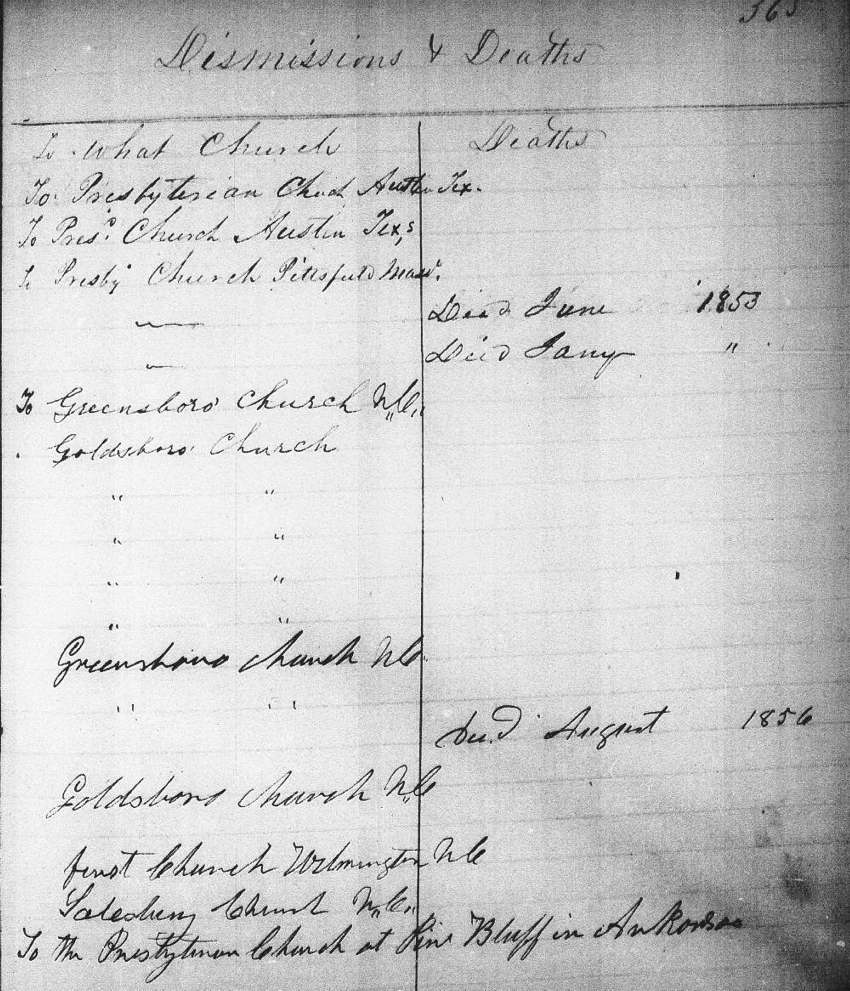 365
Dismissions & Deaths
To what Church Deaths
To Presbyterian Chuch Austin Tex.
To Pres. Church Austin Texs
To Presby Church Pittsfield Mass.
" Died June 1853
" Died Jany "
To Greensboro Church N,,C,,
Goldsboro Church
" "
" "
" "
" "
Greensboro Church NC
" "
Died August 1856
Goldsboro Church N,,C
first Church Wilmington NC
Salesbury Church N,,C,,
To the Presbyterian Church at Pine Bluff in Arkansas